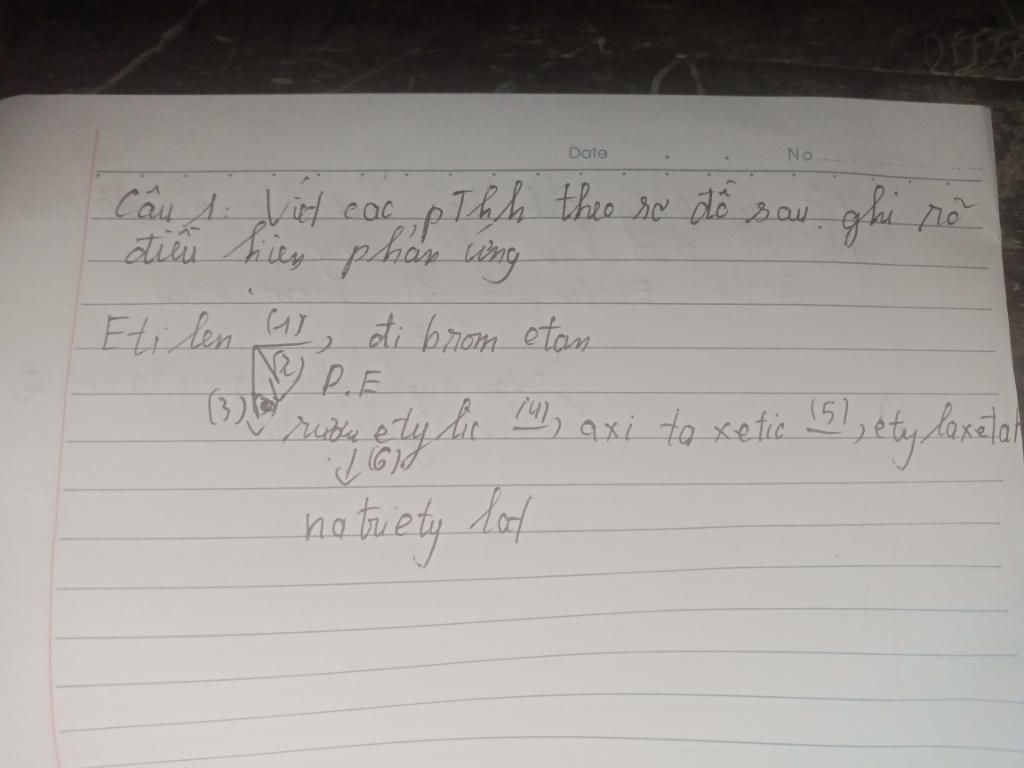 Date . . No
Câu 1: Viết các pThh theo sơ đồ sau. ghi rõ
điều hiện phản ứng
Eti len (1) đi brom etan
(2) P.E
(3) rượu ety lic (4) axi ta xetic (5) ety laxetat
(6)
natriety lat